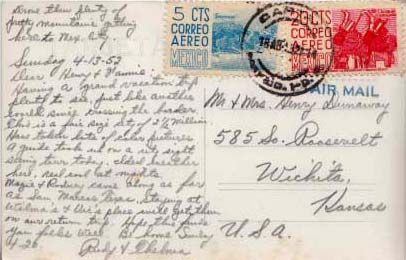 Drove thru plenty of
pretty mountains getting
here to Mex. City.
Sunday 4-13-53
Dear Henry & Fannie:
Having a grand vacation trip
plenty to see, just like another
world since crossing the border
This is a fair size city of 2 1/2 million
Have taken lots of clear pictures
A guide took us on a city sight
seeing tour today. Oldest
here, real cool last night.
Magie & Rodney came along as far
as San Marcos Texas, staying at
Thelma's & Av's place will get them
on our return trip. Hope this finds
you folks well. Be home Sunday
4-20.
Rudy & Thelma
5 CTS
CORREO
AEREO
MEXICO
20 CTS
CORREO
AEREO
MEXICO
AIR MAIL
Mr & Mrs. Henry Dunaway
585 So. Roosevelt
Wichita,
Kansas
U.S.A.